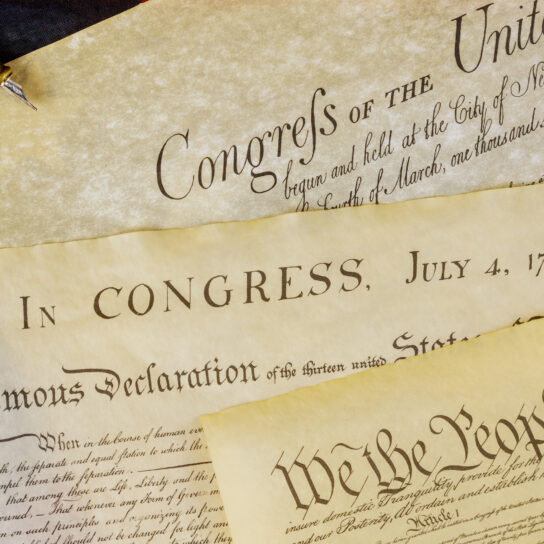 Congreſs OF THE Unit
begun and held at the City of Ne
Fourth of March, one thousand
IN CONGRESS, JULY 4, 17
mous Declaration of the thirteen united States
When in the Course of human eve
the separate and equal station to which the
impel them to the separation.
that among these are Life, Liberty and the p
That whenever any Form of Governm
on such principles and organizing its pow
should not be changed for light an
We the Peop
insure domestic Tranquility, provide for the
and our Posterity, do ordain and establish
Article I